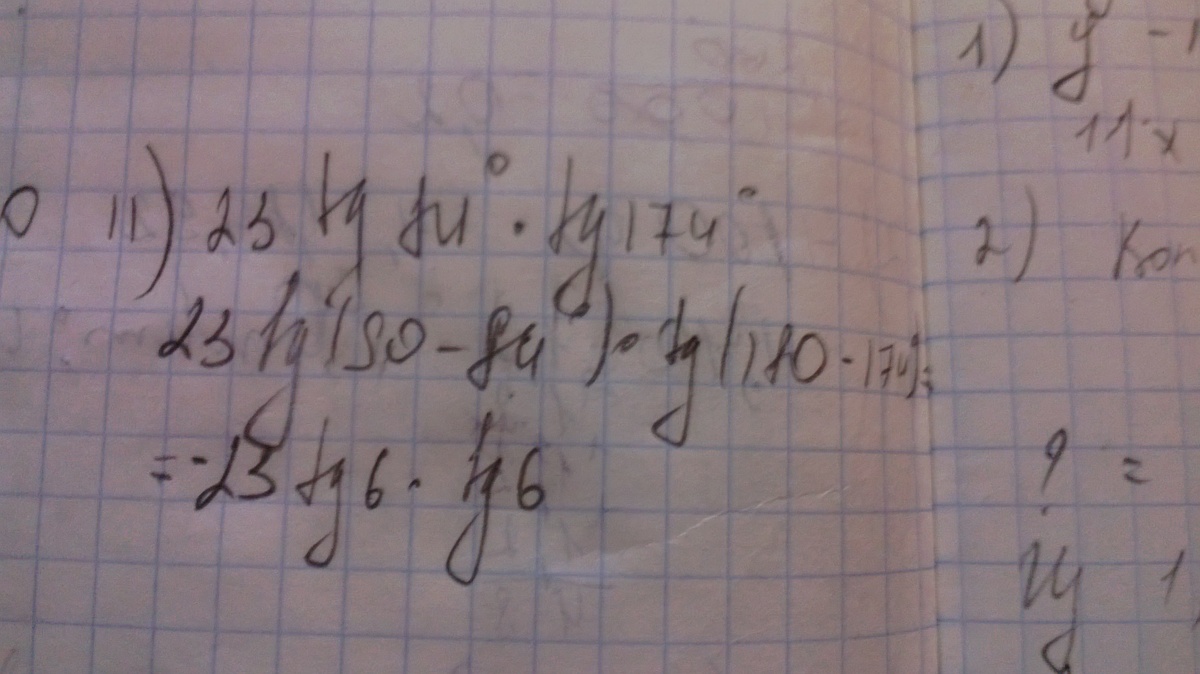 11) 23 tg 84° · tg 174°
23 tg (90 - 84°) · tg (180 - 174°) =
= -23 tg 6 · tg 6
1) y - 1
11x
2) Кол
? =